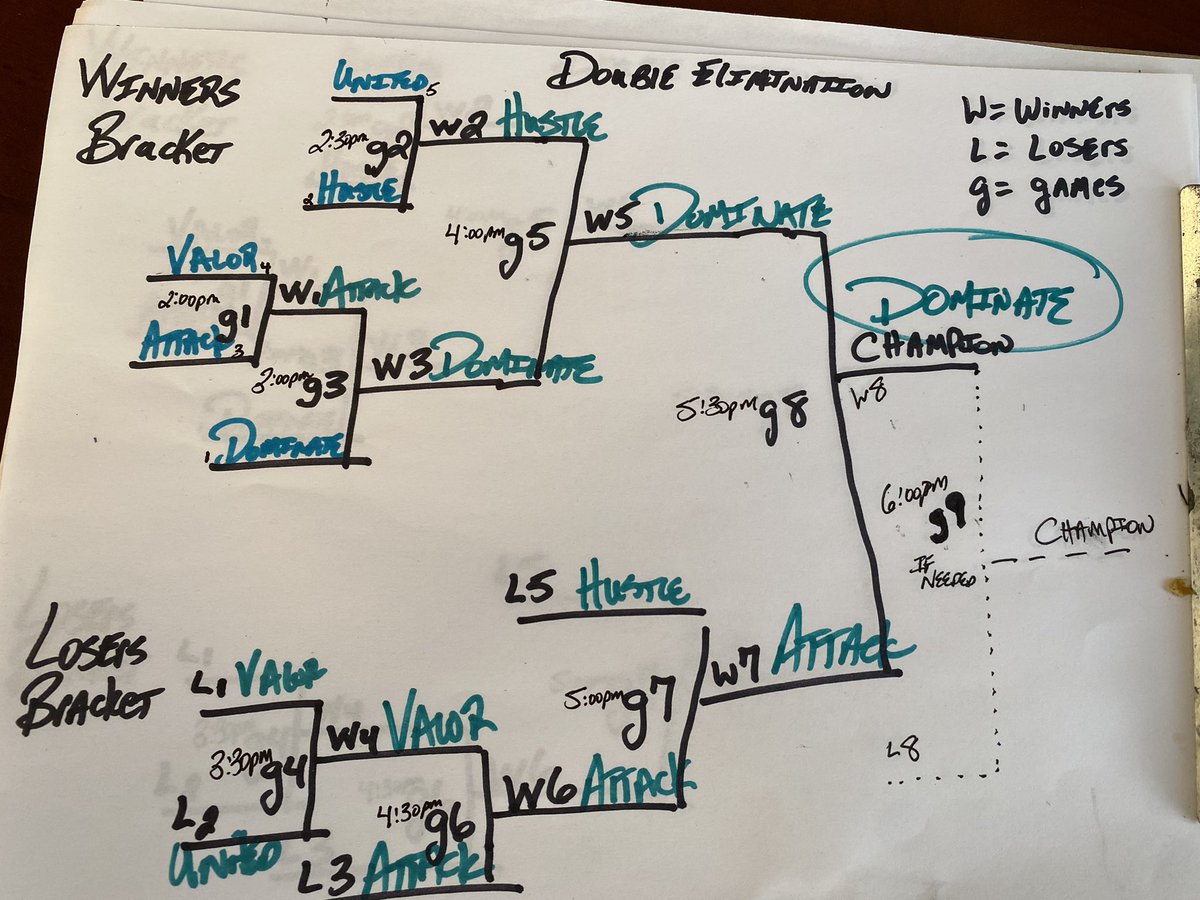 WINNERS
Bracket
DOUBLE ELIMINATION
W= WINNERS
L= LOSERS
g= games
UNITED 5
2:30pm g2
2 HUSTLE
W2 HUSTLE
VALOR 4
2:00pm g1
ATTACK 3
W1 ATTACK
3:00pm g3
1 DOMINATE
W3 DOMINATE
4:00pm g5
W5 DOMINATE
DOMINATE
CHAMPION
W8
5:30pm g8
6:00pm
g9
IF NEEDED
CHAMPION
L8
LOSERS
BRACKET
L1 VALOR
3:30pm g4
L2
UNITED
W4 VALOR
4:30pm g6
L3 ATTACK
W6 ATTACK
L5 HUSTLE
5:00pm g7
W7 ATTACK